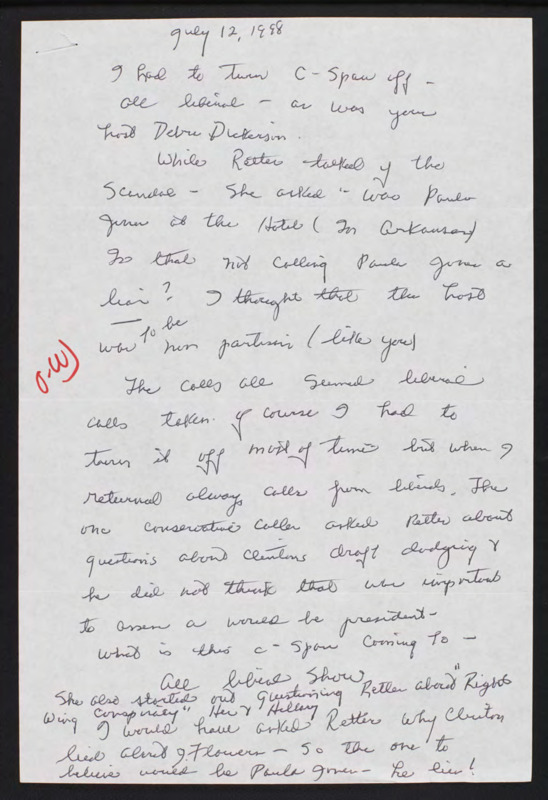 July 12, 1998
I had to turn C-Span off -
all liberal - as was your
host Debra Dickerson.
While Retter talked of the
Scandal - She asked - was Paula
Jones at the Hotel (In Arkansas)
Is that not calling Paula Jones a
liar? I thought that the host
was to be non partisan (like you)
O-W
The calls all seemed liberal
calls taken. Of course I had to
turn it off most of time but when I
returned always calls from liberals. The
one conservative caller asked Retter about
questions about Clintons draft dodging &
he did not think that was important
to a would be president -
What is this C-Span Coming To -
All liberal Show
She also started out Questioning Retter about "Rights
Wing Conspiracy" Her & Hillary
I would have asked Retter why Clinton
lied about G. Flowers - So the one to
believe would be Paula Jones - he lies!